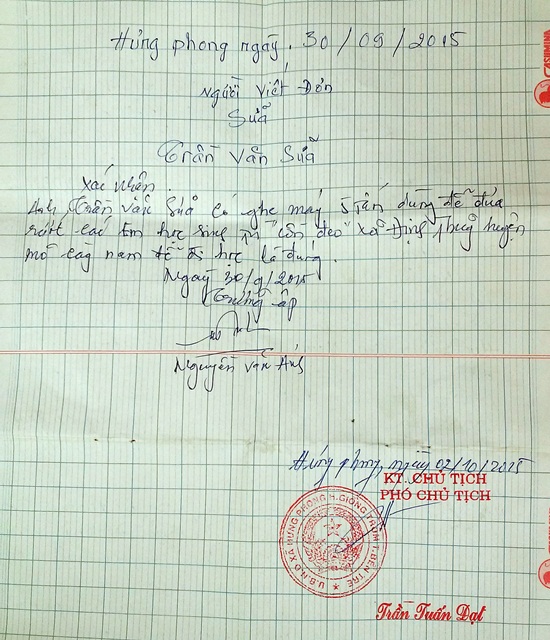 Hưng phong ngày. 30/09/2015
Người viết Đơn
Sửa
Trần Văn Sửa
Xác nhận.
Anh, Trần văn Sửa có ghe máy 5 tấn dùng để đưa
rước các em học sinh từ "cồn dèo" xã Định Thuỷ huyện
mõ cày nam để đi học là đúng.
Ngày 30/9/2015
Trưởng ấp
Nguyễn Văn Ánh
Hưng phong, ngày 02/10/2015
KT. CHỦ TỊCH
PHÓ CHỦ TỊCH
U.B.N.D XÃ HƯNG PHONG H.GIỒNG TRÔM T.BẾN TRE
Trần Tuấn Đạt
CASUMINA